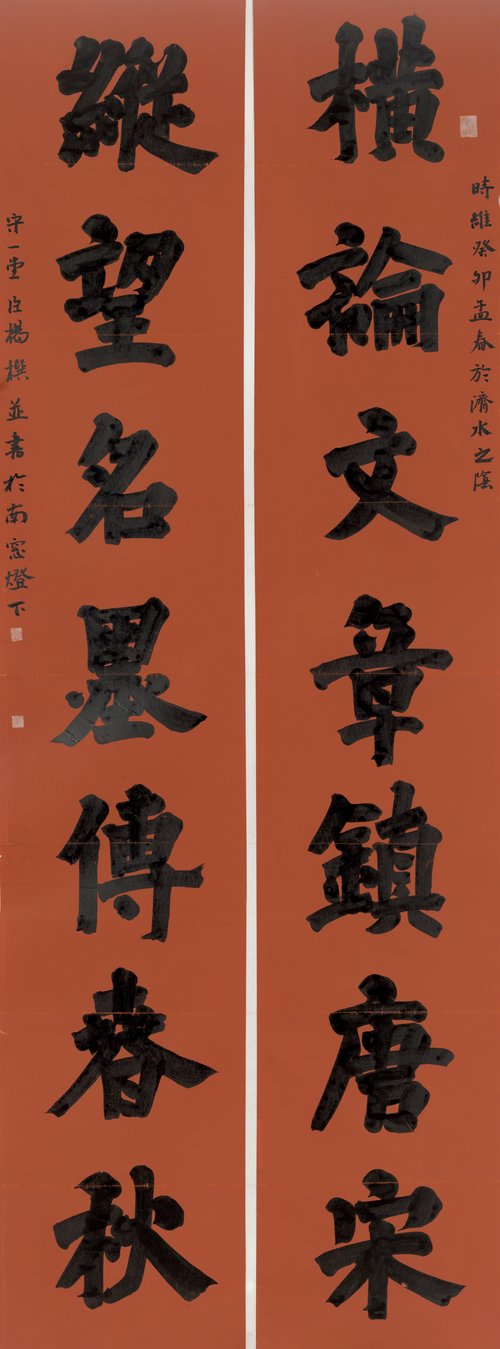 橫論文章鎮唐宋
時維癸卯孟春於濟水之陰
縱望名墨傳春秋
守一堂臣楊撰並書於南窓燈下